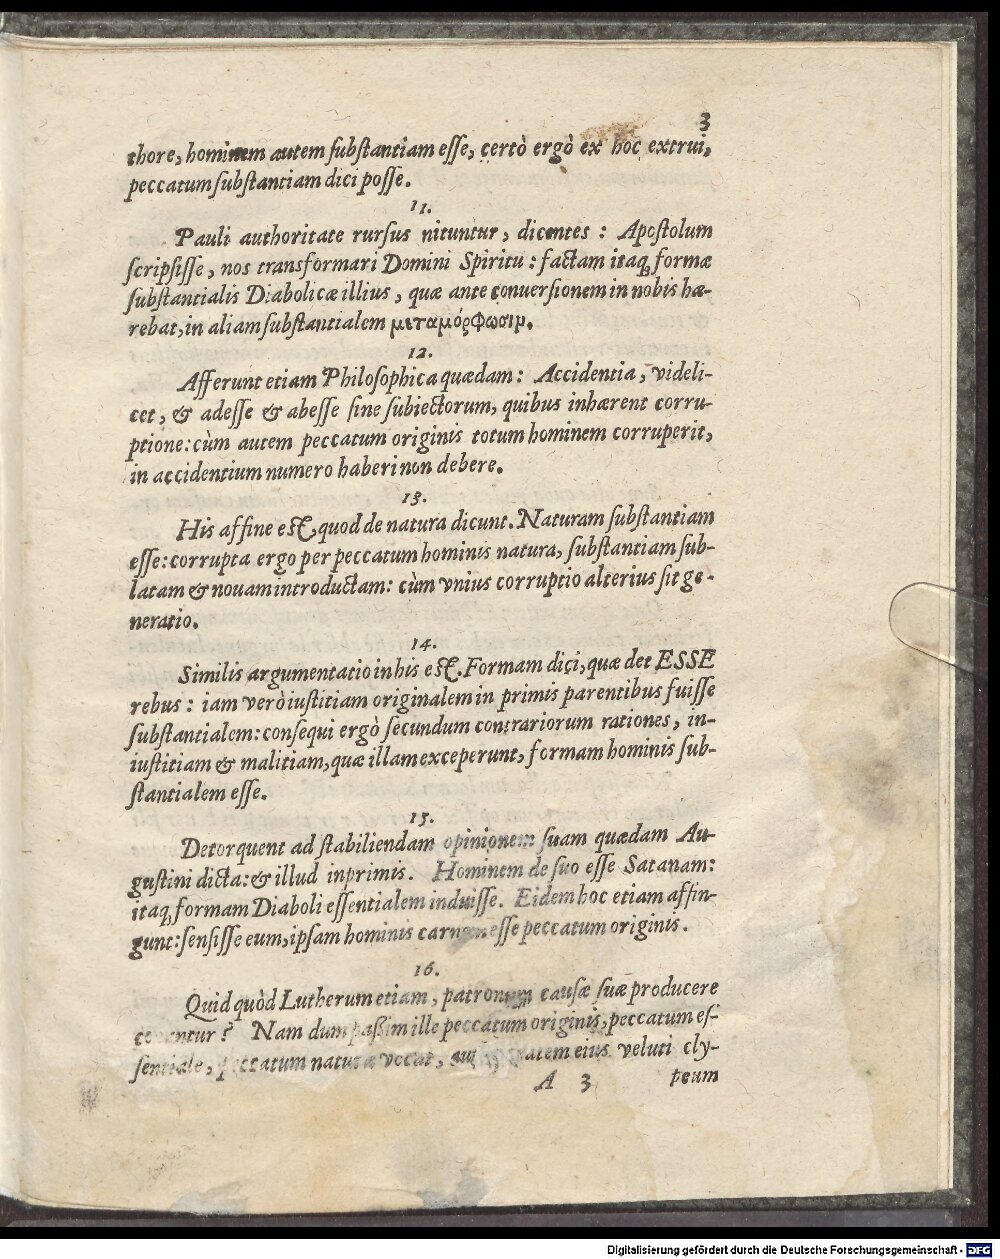 3
thore, hominem autem substantiam esse, certò ergò ex hoc extrui,
peccatum substantiam dici posse.
11.
Pauli authoritate rursus nituntur, dicentes: Apostolum
scripsisse, nos transformari Domini Spiritu: factam itaq; formæ
substantialis Diabolicæ illius, quæ ante conuersionem in nobis hæ-
rebat, in aliam substantialem μεταμόρφωσιμ.
12.
Afferunt etiam Philosophica quædam: Accidentia, videli-
cet, & adesse & abesse sine subiectorum, quibus inhærent corru-
ptione: cùm autem peccatum originis totum hominem corruperit,
in accidentium numero haberi non debere.
13.
His affine est, quod de natura dicunt. Naturam substantiam
esse: corrupta ergo per peccatum hominis natura, substantiam sub-
latam & nouam introductam: cùm vnius corruptio alterius sit ge-
neratio.
14.
Similis argumentatio in his est. Formam dici, quæ det ESSE
rebus: iam verò iustitiam originalem in primis parentibus fuisse
substantialem: consequi ergò secundum contrariorum rationes, in-
iustitiam & malitiam, quæ illam exceperunt, formam hominis sub-
stantialem esse.
15.
Detorquent ad stabiliendam opinionem suam quædam Au-
gustini dicta: & illud inprimis. Hominem de suo esse Satanam:
itaq; formam Diaboli essentialem induisse. Eidem hoc etiam affin-
gunt: sensisse eum, ipsam hominis carnem esse peccatum originis.
16.
Quid quòd Lutherum etiam, patronum causæ suæ producere
conantur? Nam dum paßim ille peccatum originis, peccatum es-
sentiale, peccatum naturæ vocat, eius veluti cly-
A 3 peum
Digitalisierung gefördert durch die Deutsche Forschungsgemeinschaft - DFG